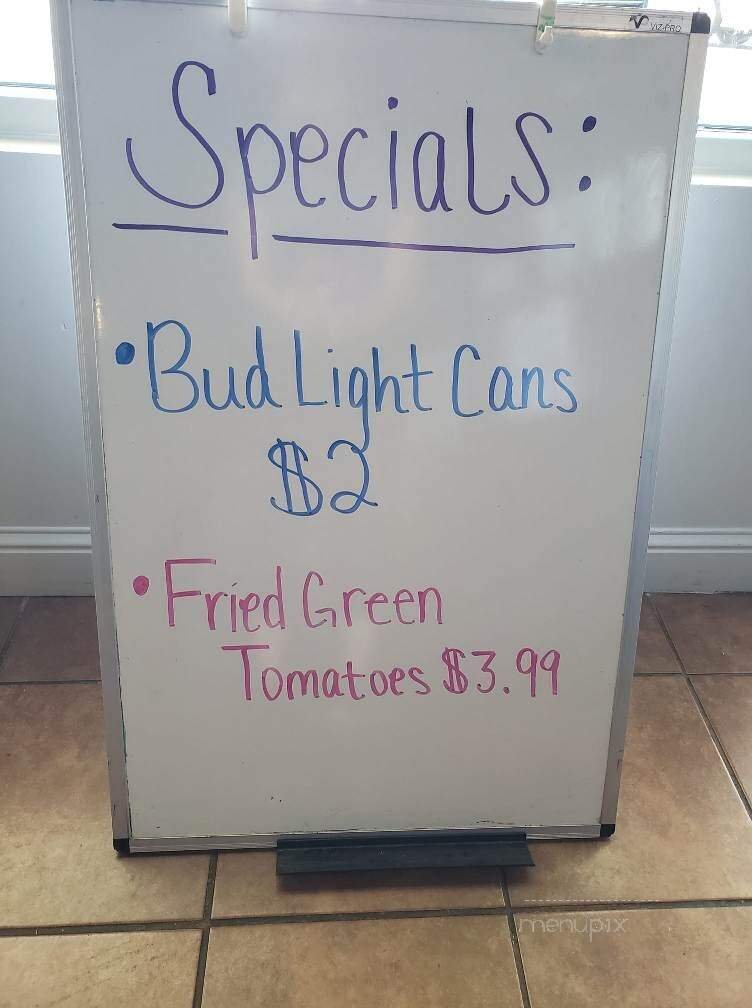 VIZ-PRO
Specials:
•Bud Light Cans
$2
•Fried Green
Tomatoes $3.99
menupix